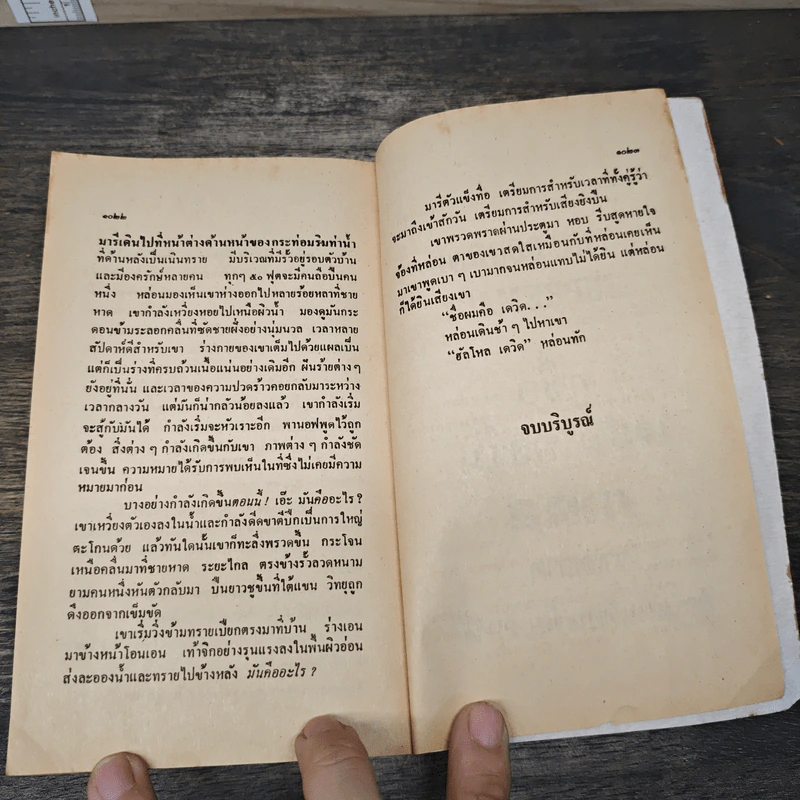 ๑๐๒๒
มารีเดินไปที่หน้าต่างด้านหน้าของกระท่อมริมท่าน้ำ
ที่ด้านหลังเป็นเนินทราย มีบริเวณที่มีรั้วอยู่รอบตัวบ้าน
และมีองครักษ์หลายคน ทุกๆ ๕๐ ฟุตจะมีคนถือปืนคน
หนึ่ง หล่อนมองเห็นเขาห่างออกไปหลายร้อยหลาที่ชาย
หาด เขากำลังเหวี่ยงหอยไปเหนือผิวน้ำ มองดูมันกระ
ดอนข้ามระลอกคลื่นที่ซัดชายฝั่งอย่างนุ่มนวล เวลาหลาย
สัปดาห์ดีสำหรับเขา ร่างกายของเขาเต็มไปด้วยแผลเป็น
แต่ก็เป็นร่างที่ครบถ้วนเนื้อแน่นอย่างเดิมอีก ฝันร้ายต่างๆ
ยังอยู่ที่นั่น และเวลาของความปวดร้าวคอยกลับมาระหว่าง
เวลากลางวัน แต่มันก็น่ากลัวน้อยลงแล้ว เขากำลังเริ่ม
จะสู้กับมันได้ กำลังเริ่มจะหัวเราะอีก พานอฟพูดไว้ถูก
ต้อง สิ่งต่าง ๆ กำลังเกิดขึ้นกับเขา ภาพต่าง ๆ กำลังชัด
เจนขึ้น ความหมายได้รับการพบเห็นในที่ซึ่งไม่เคยมีความ
หมายมาก่อน
บางอย่างกำลังเกิดขึ้นตอนนี้! เอ๊ะ มันคืออะไร?
เขาเหวี่ยงตัวเองลงในน้ำและกำลังดีดขาตีปีกเป็นการใหญ่
ตะโกนด้วย แล้วทันใดนั้นเขาก็ทะลึ่งพรวดขึ้น กระโจน
เหนือคลื่นมาที่ชายหาด ระยะไกล ตรงข้างรั้วลวดหนาม
ยามคนหนึ่งหันตัวกลับมา ปืนยาวชูขึ้นที่ใต้แขน วิทยุถูก
ดึงออกจากเข็มขัด
เขาเริ่มวิ่งข้ามทรายเปียกตรงมาที่บ้าน ร่างเอน
มาข้างหน้าโอนเอน เท้าจิกอย่างรุนแรงลงในพื้นผิวอ่อน
ส่งละอองน้ำและทรายไปข้างหลัง มันคืออะไร?
๑๐๒๓
มารีตัวแข็งทื่อ เตรียมการสำหรับเวลาที่ทั้งคู่รู้ว่า
จะมาถึงเข้าสักวัน เตรียมการสำหรับเสียงยิงปืน
เขาพรวดพราดผ่านประตูมา หอบ รีบสูดหายใจ
จ้องที่หล่อน ตาของเขาสดใสเหมือนกับที่หล่อนเคยเห็น
มาเขาพูดเบา ๆ เบามากจนหล่อนแทบไม่ได้ยิน แต่หล่อน
ก็ได้ยินเสียงเขา
“ชื่อผมคือ เดวิด. . .”
หล่อนเดินช้า ๆ ไปหาเขา
“ฮัลโหล เดวิด” หล่อนทัก
จบบริบูรณ์